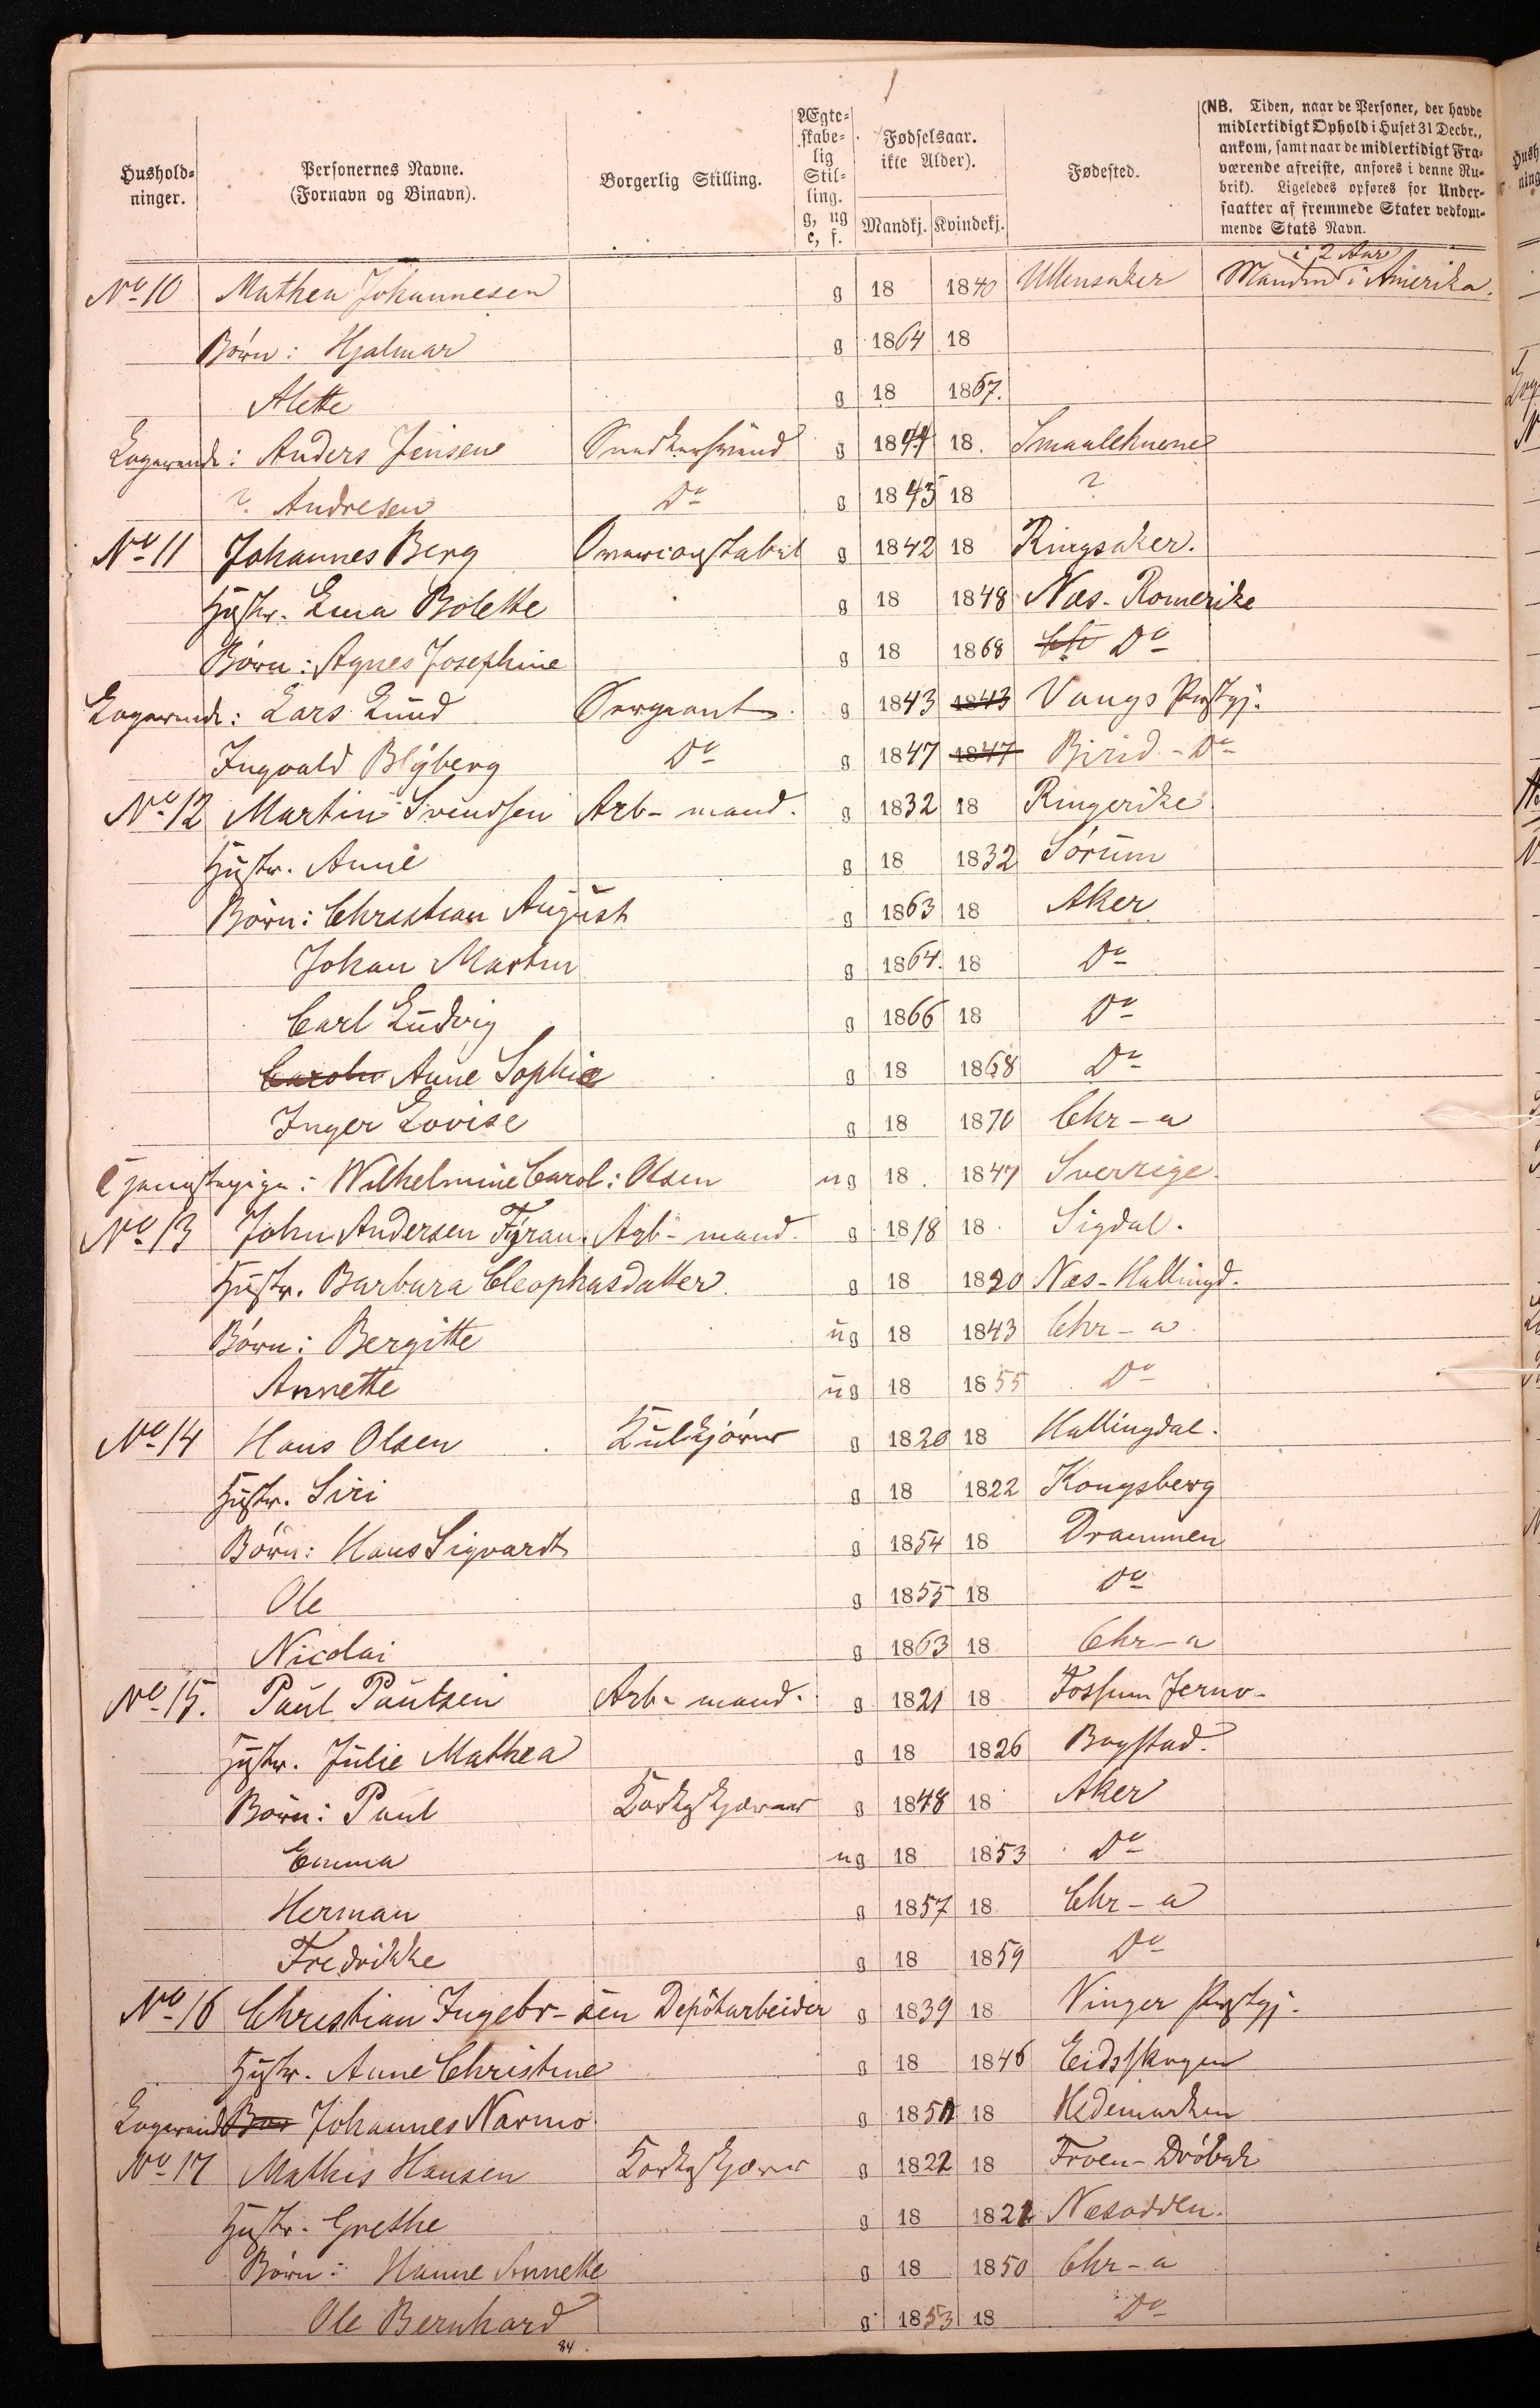 Hushold-
ninger.
Personernes Navne.
(Fornavn og Binavn).
Borgerlig Stilling.
Ægte-
skabe-
lig
Stil-
ling.
g, ug
e, f.
Fødselsaar.
ikke Alder).
Mandkj. Kvindekj.
Fødested.
(NB. Tiden, naar de Personer, der havde
midlertidigt Ophold i Huset 31 Decbr.,
ankom, samt naar de midlertidigt Fra-
værende afreiste, anføres i denne Ru-
brik). Ligeledes opføres for Under-
saatter af fremmede Stater vedkom-
mende Stats Navn.
i 2 Aar
No 10 Mathea Johannesen g 18 1840 Ullensaker Manden i Amerika.
Børn: Hjalmar g 1864 18
Alette g 18 1867.
Logerende: Anders Jensen Snedkersvend g 1844 18. Smaalenene
? Andresen Do g 1845 18 ?
No 11 Johannes Berg Overconstabel g 1842 18 Ringsaker.
Hustr. Lina Bolette g 18 1848 Næs-Romerike
Børn: Agnes Josephine g 18 1868 Do
Logerende: Lars Lund Sergeant g 1843 1843 Vangs Prstgj.
Ingvald Blÿberg Do g 1847 1847 Birid - Do
No 12 Martin Svendsen Arb-mand. g 1832 18 Ringerike
Hustr. Anne g 18 1832 Sørum
Børn: Christian August g 1863 18 Aker
Johan Martin g 1864. 18 Do
Carl Ludvig g 1866 18 Do
Anne Sophie g 18 1868 Do
Inger Lovise g 18 1870 Chr-a
Tjenestepige: Wilhelmine Carol: Olsen ug 18. 1847 Sverrige.
No 13 John Andersen Fyran. Arb-mand. g 1818 18 Sigdal.
Hustr. Barbara Cleophasdatter g 18 1820 Næs-Hallingd.
Børn: Bergitte ug 18 1843 Chr-a
Annette ug 18 1855 Do
No 14 Hans Olsen Kulkjører g 1820 18 Hallingdal.
Hustr. Siri g 18 1822 Kongsberg
Børn: Hans Sigvardt g 1854 18 Drammen
Ole g 1855 18 Do
Nicolai g 1863 18 Chr-a
No 15. Paul Paulsen Arb-mand. g 1821 18 Fossum Jernv-
Hustr. Julie Mathea g 18 1826 Bogstad.
Børn: Paul Korkskjærer g 1848 18 Aker
Emma ug 18 1853 Do
Herman g 1857 18 Chr-a
Fredrikke g 18 1859 Do
No 16 Christian Ingebr-sen Depôtarbeider g 1839 18 Vinger Prstgj.
Hustr. Anne Christine g 18 1846 Eidsskogen
Logerende Johannes Narmo g 18 Hedemarken
No 17 Mathis Hansen Korkskjærer g 1822 18 Froen-Drøbak
Hustr. Grethe g 18 1821 Næsodden.
Børn: Hanne Annette g 18 1850 Chr-a
Ole Bernhard g 1853 18 Do
84